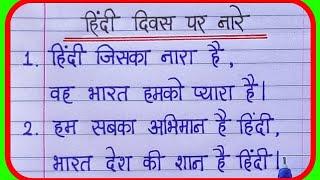 हिंदी दिवस पर नारे
1. हिंदी जिसका नारा है,
वह भारत हमको प्यारा है।
2. हम सबका अभिमान है हिंदी,
भारत देश की शान है हिंदी।